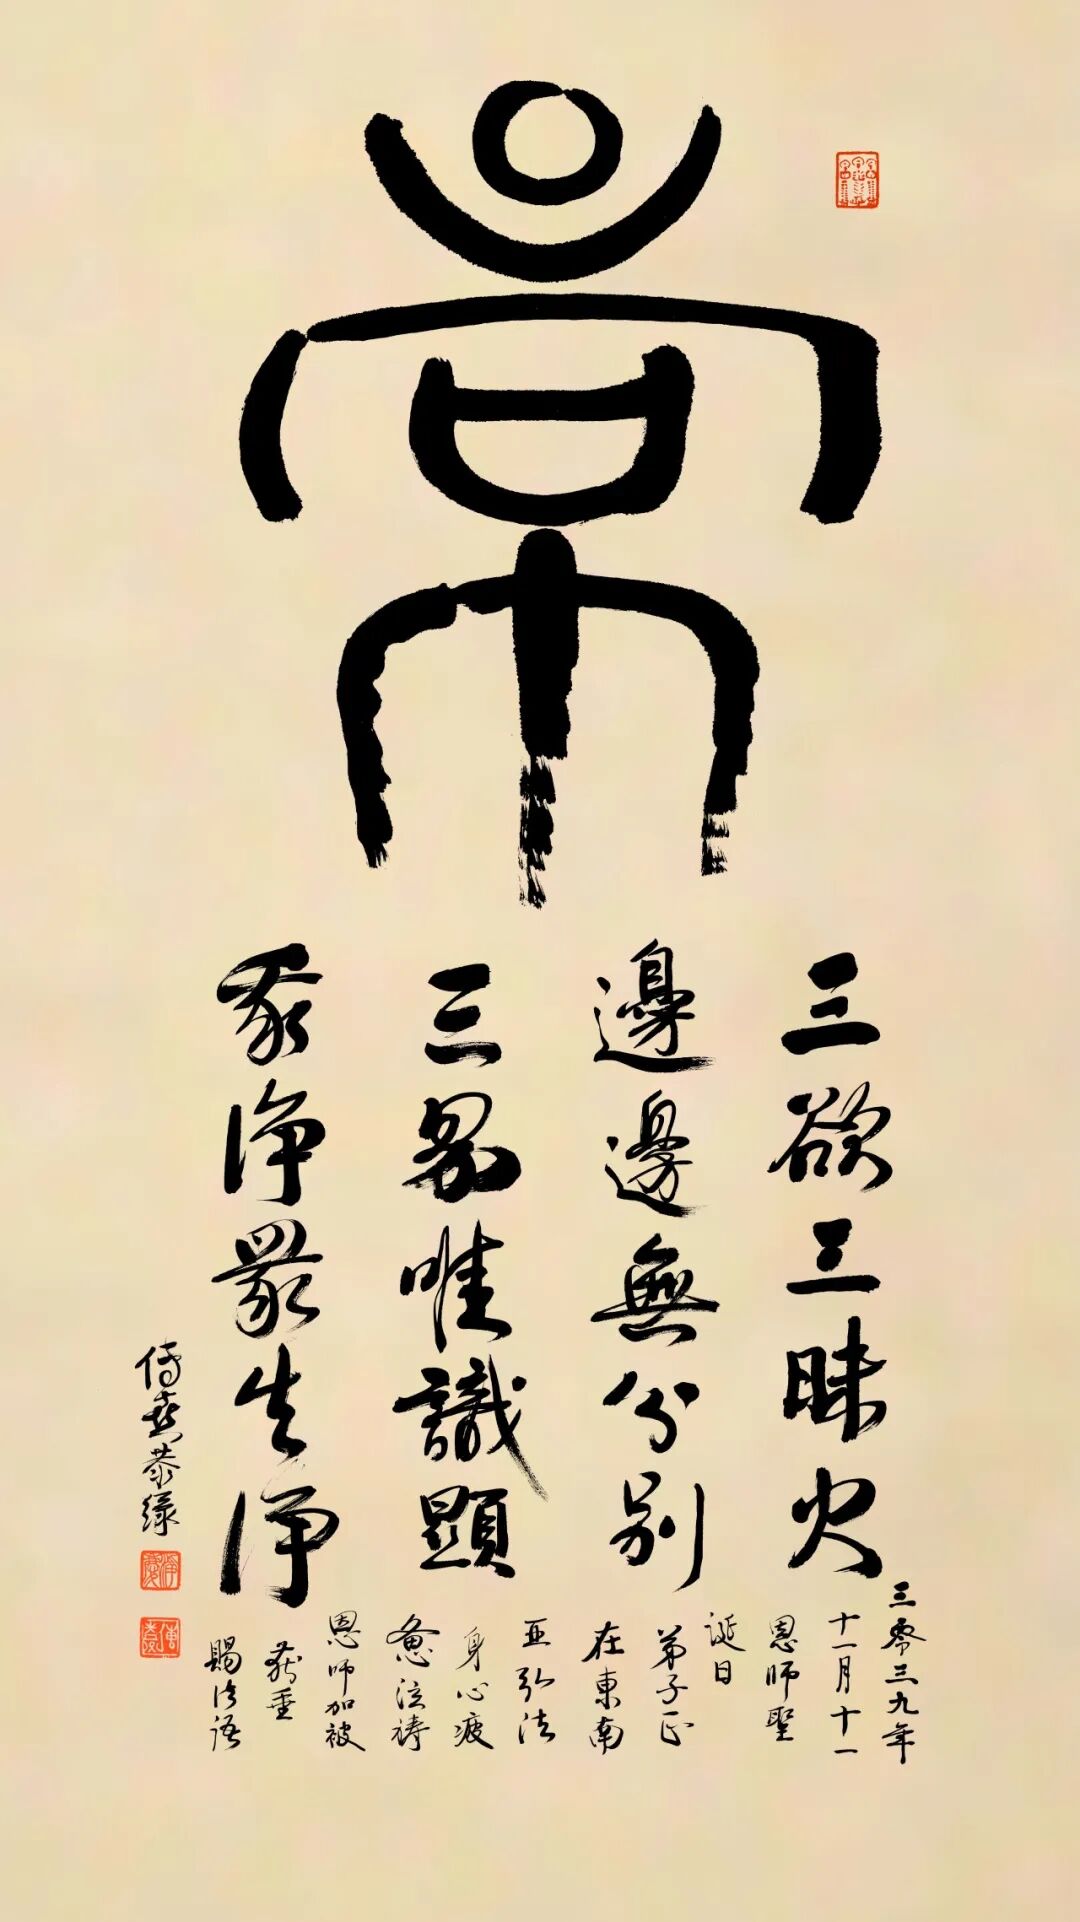 常
三欲三昧火
邊邊無分別
三界唯識顯
家淨眾生淨
三零三九年
十一月十一
恩師聖
誕日
弟子正
在東南
亞弘法
身心疲
憊泣禱
恩師加被
感垂
賜法語
傳喜恭錄